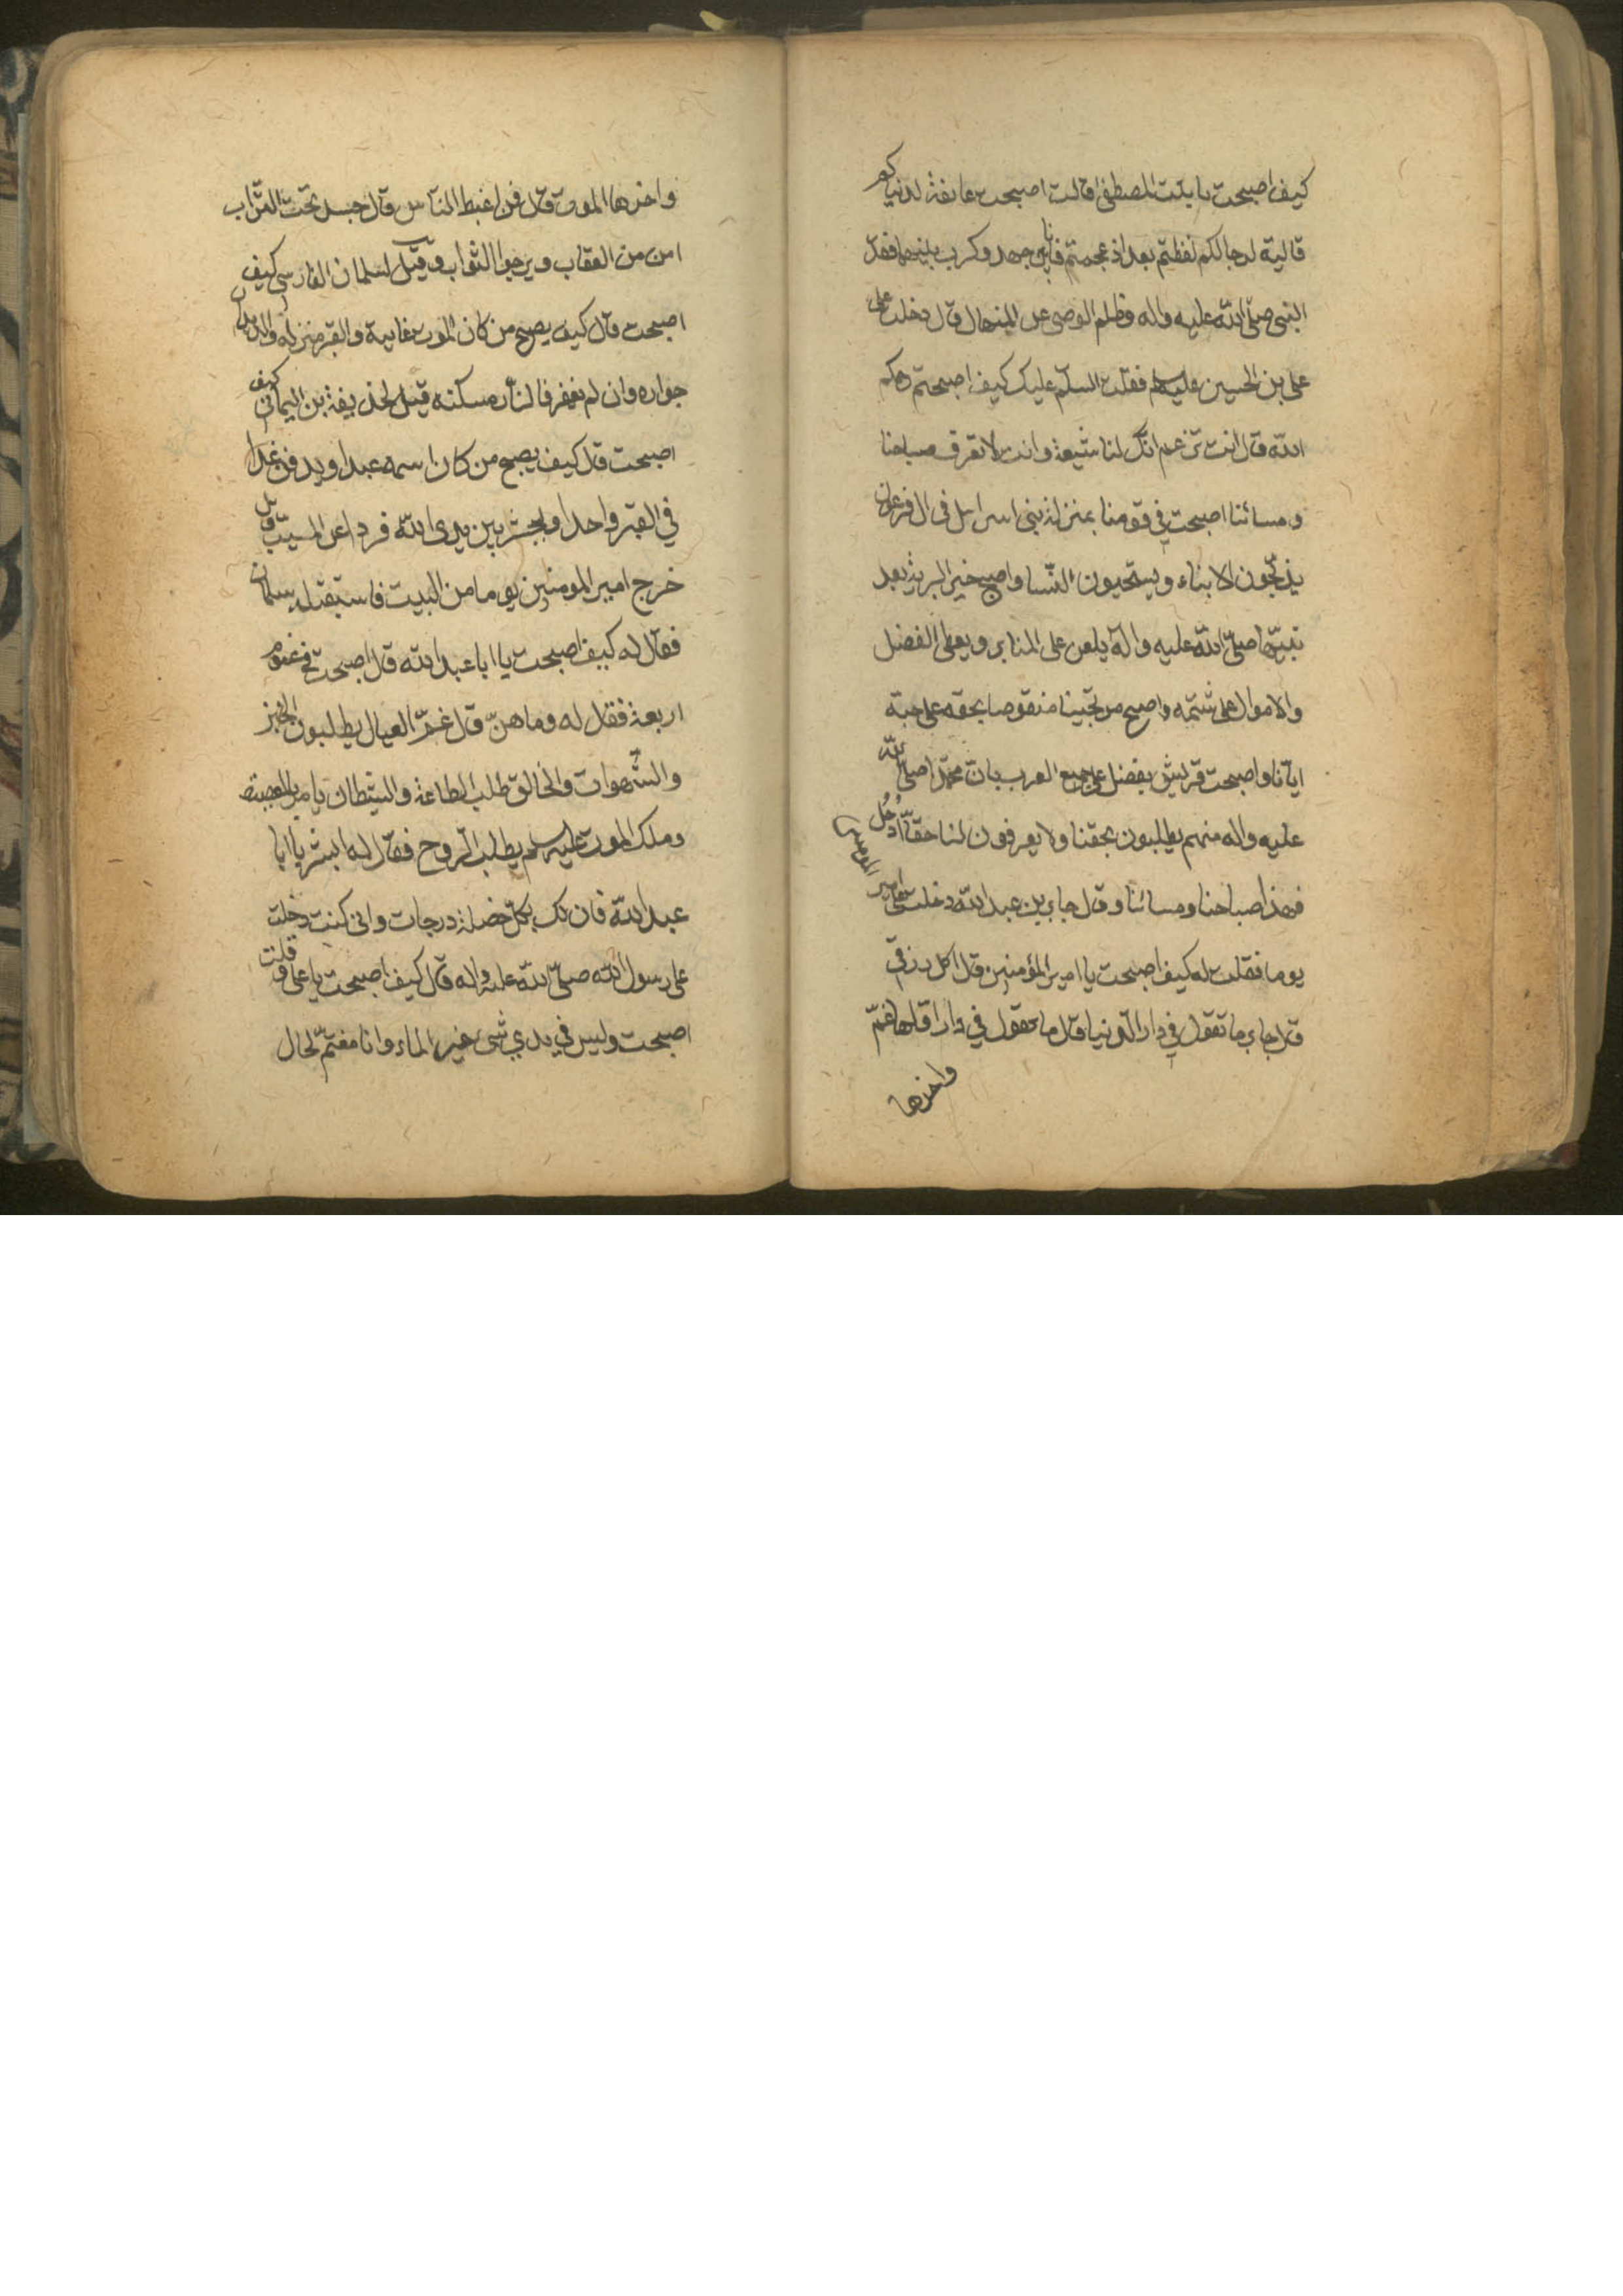 كيف اصبحت يا بنت المصطفى قالت اصبحت عايفة لدنياكم
قالية لرجالكم لفظتم بعد اذ عجمتم فانا بين جهد وكرب بينهما فقد
النبي صلى الله عليه واله وظلم الوصي عن المنهال قال دخلت على
على بن الحسين عليه السلم فقلت السلم عليك كيف اصبحتم رحمكم
الله قال انت تزعم انك لنا شيعة وانت لا تعرف صباحنا
ومسائنا اصبحت في قومنا بمنزلة بنى اسرائل فى ال فرعون
يذبحون الابناء ويستحيون النسا واصبح خير البرية بعد
نبيها صلى الله عليه وآله يلعن على المنابر ويعطى الفضل
والاموال على شتمه واصبح من يحبنا منقوصا بحقه على حبه
ايانا واصبحت قريش يفضل على جميع العرب بان محمدا صلى الله
عليه واله منهم يطلبون بحقنا ولا يعرفون لنا حقا ادخل
فهذا صباحنا ومسائنا وقال جابر بن عبد الله دخلت على امير المؤمنين
يوما فقلت له كيف اصبحت يا امير المؤمنين قال اكل رزقي
قال جابر ما تقول في دار الدنيا قال ما تقول في دار اولها غم
واخرها
واخرها الموت قال فمن اغبط الناس قال جسد تحت التراب
امن من العقاب ويرجوا الثواب وقيل لسلمان الفارسي كيف
اصبحت قال كيف يصبح من كان الموت غايته والقبر منزله والديدان
جواره وان لم يغفر فالنار مسكنه قيل لحذيفة بن اليمانى كيف
اصبحت قال كيف يصبح من كان اسمه عبدا ويدفن غدا
في القبر واحدا ويحشر بين يدى الله فردا عن المسيب قال
خرج امير المومنين يوما من البيت فاستقبله سلمان
فقال له كيف اصبحت يا ابا عبد الله قال اصبحت في غموم
اربعة فقال له وما هن قال غم العيال يطلبون الخبز
والشهوات والخالق طلب الطاعة والشيطان يامر بالمعصية
وملك الموت عليه سلم يطلب الروح فقال له ابشر يا ابا
عبد الله فان لك بكل خصلة درجات وانى كنت دخلت
على رسول الله صلى الله عليه واله قال كيف اصبحت يا على فقلت
اصبحت وليس في يدي شى غير الماء وانا مغتم لحال